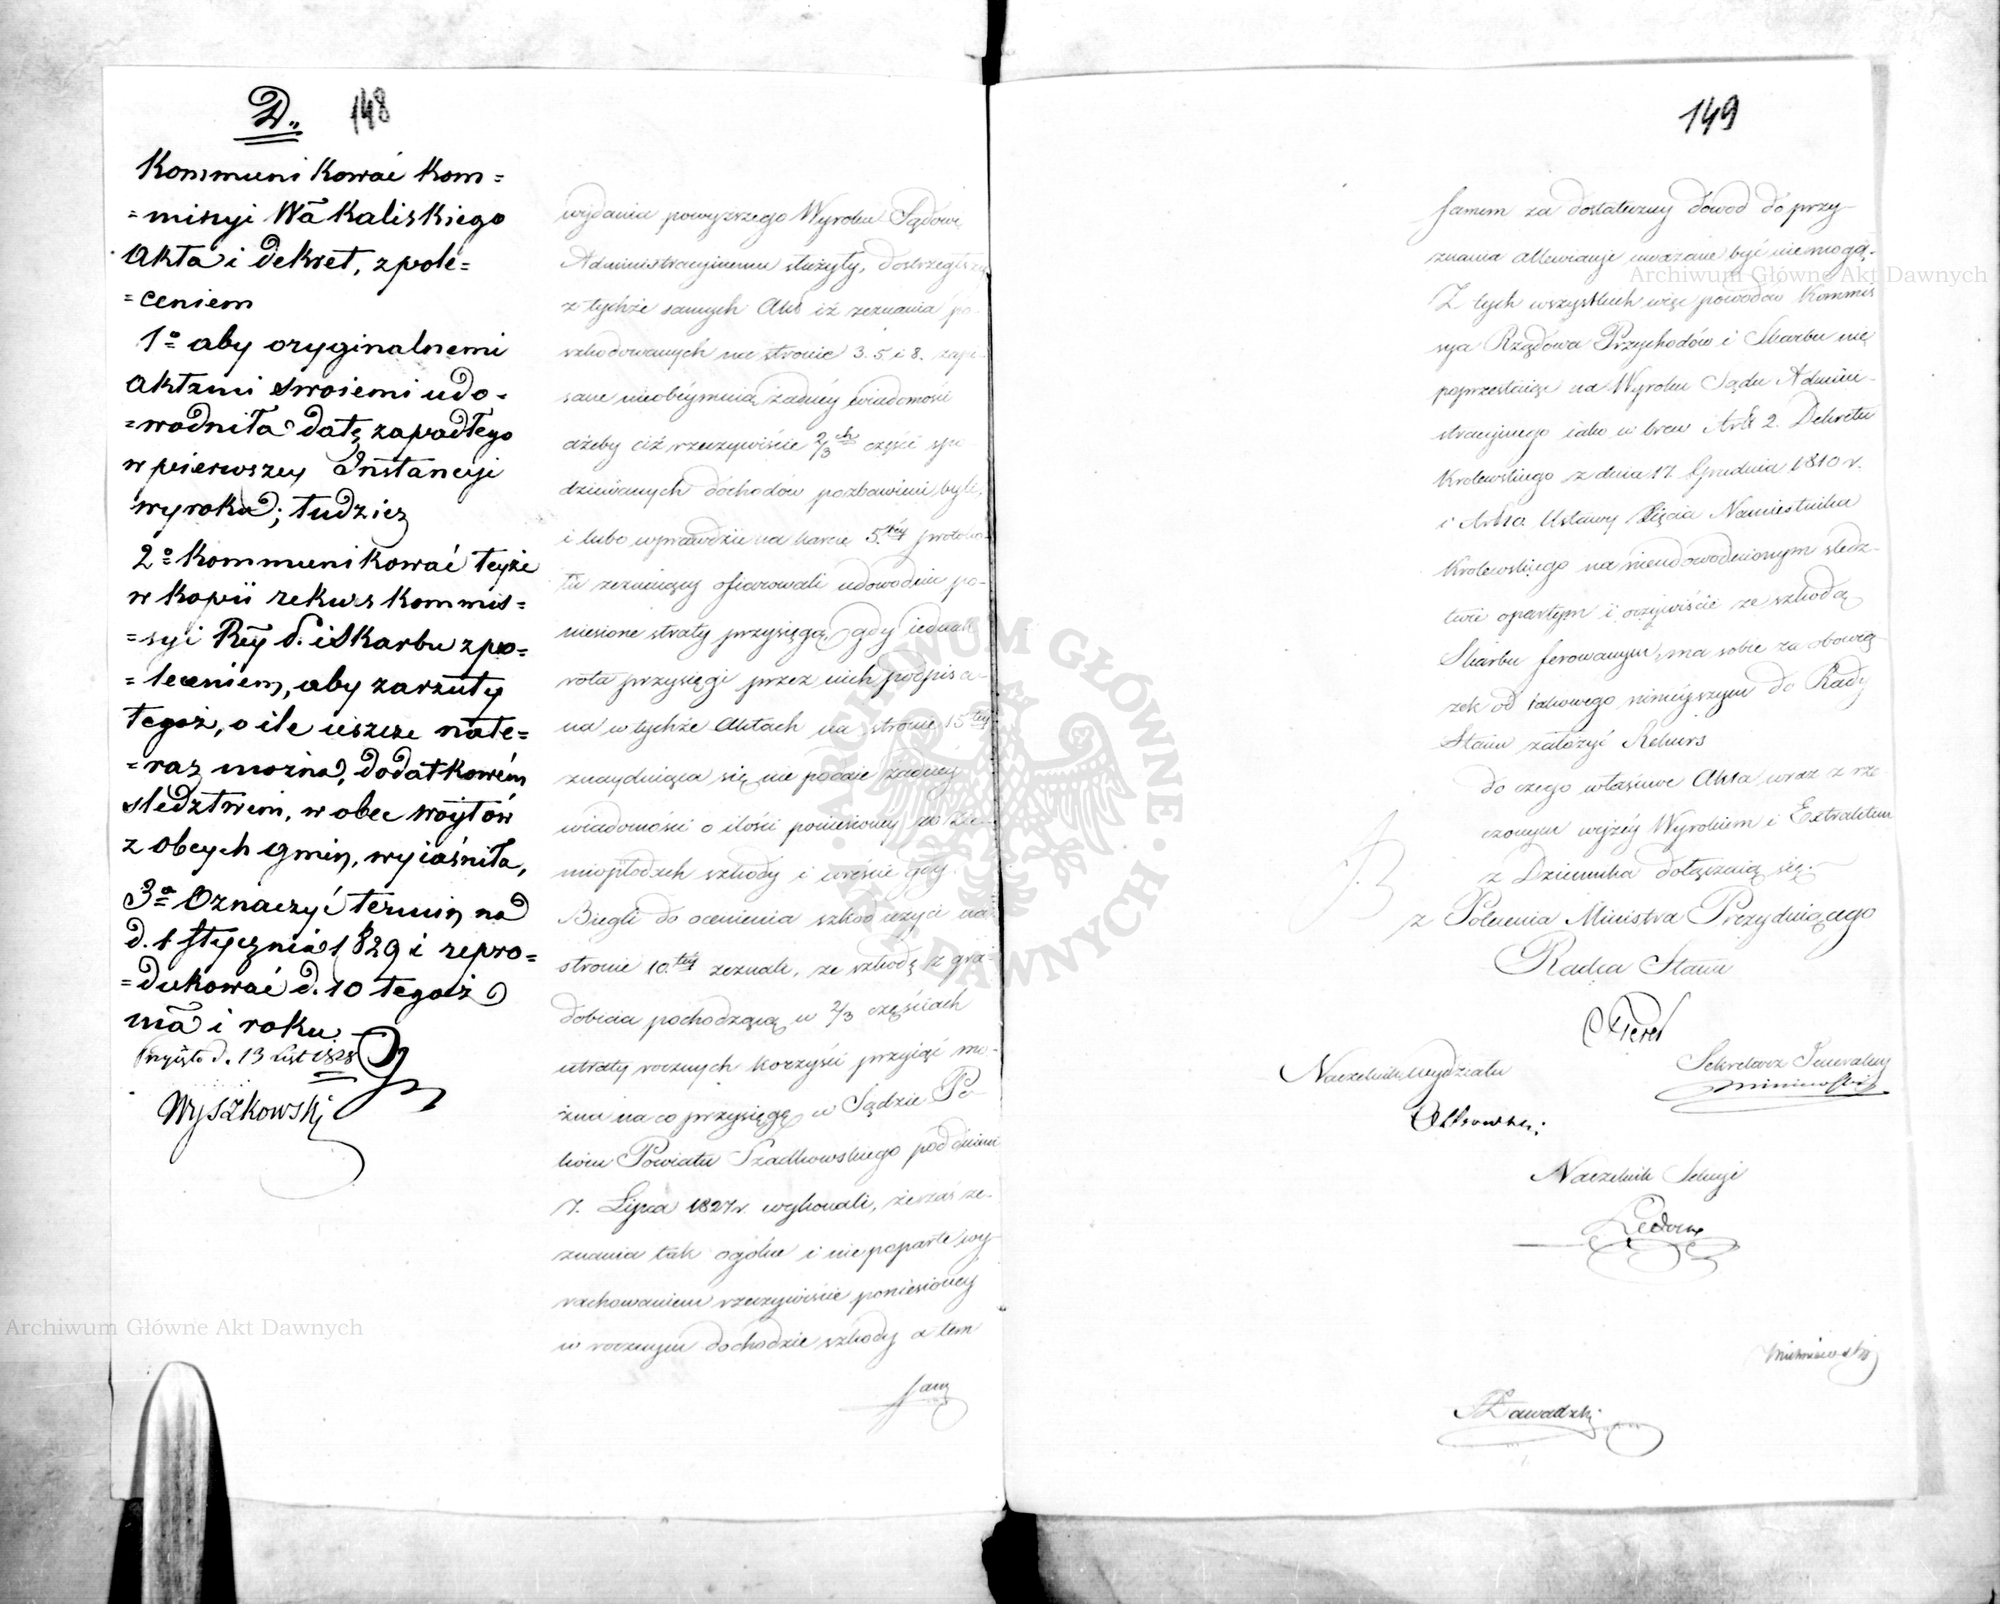 D„ 148
Kommunikować Kom=
=missyi Wa Kaliskiego
Akta i Dekret, z pole=
=ceniem
1º aby oryginalnemi
Aktami swoiemi udo=
=wodniła datę zapadłego
w pierwszey Instancyi
wyroku; tudzież
2º Kommunikować teyże
w kopii rekurs Kommis=
=syi Rey P. i Skarbu z po=
=leceniem, aby zarzuty
tegoż, o ile ieszcze na te=
=raz można, dodatkowém
śledztwem, w obec woytów
z obcych gmin, wyiaśniła,
3º Oznaczyć termin na
d. 1 Stycznia 1829 i repro=
=dukować d. 10 tegoż
ma i roku
Przyięto d. 13 List 1828
Wyszkowski
wydania powyższego Wyroku Sądowi
Administracyinemu służyły, dostrzegłszy
z tychże samych Akt iż zeznania po-
szkodowanych na stronie 3. 5 i 8. zapi-
sane nieobeymuią żadnéy wiadomości
ażeby ciż rzeczywiście 2/3ch części spo-
dziewanych dochodów pozbawieni byli,
i lubo wprawdzie na karcie 5.téy protoko-
łu zeznaiący ofiarowali udowodnić po-
niesione straty przysięgą, gdy iednak
rota przysięgi przez nich podpisa-
na w tychże Aktach na stronie 15téy
znayduiąca się nie podaie żadnéy
wiadomości o ilości poniesioney na Zie-
miopłodach szkody i wreście gdy
Biegli do ocenienia szkód użyci na
stronie 10.téy zeznali, że szkodę z gra-
dobicia pochodzącą w 2/3 częściach
utraty rocznych korzyści przyiąć mo-
żna na co przysięgę w Sądzie Po-
koiu Powiatu Szadkowskiego pod dniem
7. Lipca 1827 r. wykonali, że zaś ze-
znania tak ogólne i nie poparte wy-
rachowaniem rzeczywiście poniesionéy
w rocznym dochodzie szkody a tem
samem
149
samem za dostateczny dowód do przy-
znania allewiacyi uważane być nie mogą.-
Z tych wszystkich więc powodów Kommis
sya Rządowa Przychodów i Skarbu nie
poprzestaiąc na Wyroku Sądu Admini-
stracyinego iako w brew Artt 2. Dekretu
Królewskiego z dnia 17. Grudnia 1810 r.
i Ustawy Xięcia Namiestnika
Królewskiego na nieudowodnionym śledz-
twie opartym i oczywiście ze szkodą
Skarbu ferowanym, ma sobie za obowią-
zek od takowego ninieyszym do Rady
Stanu założyć Rekurs
do czego właściwe Akta wraz z rze
czonym wyżéy Wyrokiem i Extraktem
z Dziennika dołączaią się.-
z Polecenia Ministra Prezyduiącego
Radca Stanu
Sekretarz Jeneralny
Naczelnik Wydziału
Naczelnik Sekcyi
Zawadzki
Archiwum Główne Akt Dawnych
Archiwum Główne Akt Dawnych
ARCHIWUM GŁÓWNE AKT DAWNYCH